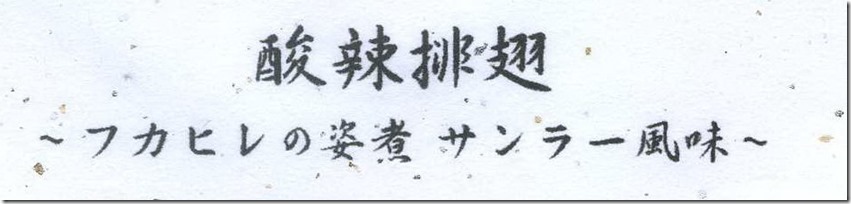 酸辣排翅
~フカヒレの姿煮 サンラー風味~